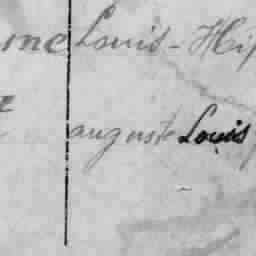 Louis-Hip
auguste Louis